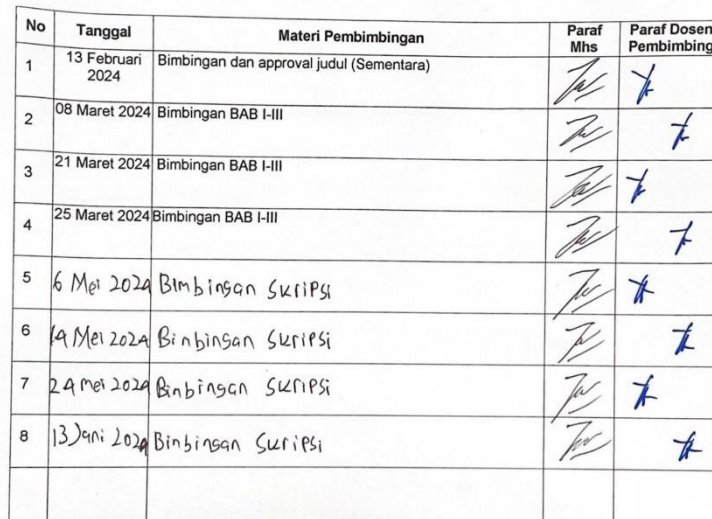 No Tanggal Materi Pembimbingan Paraf Mhs Paraf Dosen Pembimbing
1 13 Februari 2024 Bimbingan dan approval judul (Sementara)
2 08 Maret 2024 Bimbingan BAB I-III
3 21 Maret 2024 Bimbingan BAB I-III
4 25 Maret 2024 Bimbingan BAB I-III
5 6 Mei 2024 Bimbingan Skripsi
6 14 Mei 2024 Binbingan Skripsi
7 24 mei 2024 Binbingan Skripsi
8 13 Juni 2024 Binbingan Skripsi